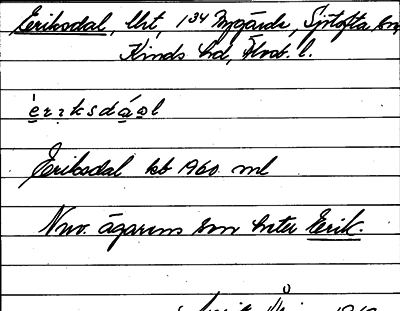 Eriksdal, lht, 1³⁴ Nygärde, Sjötofta sn,
Kinds hd, Älvsb. l.
Eriksdal kb 1960 ml
Nuv. ägarens son heter Erik.